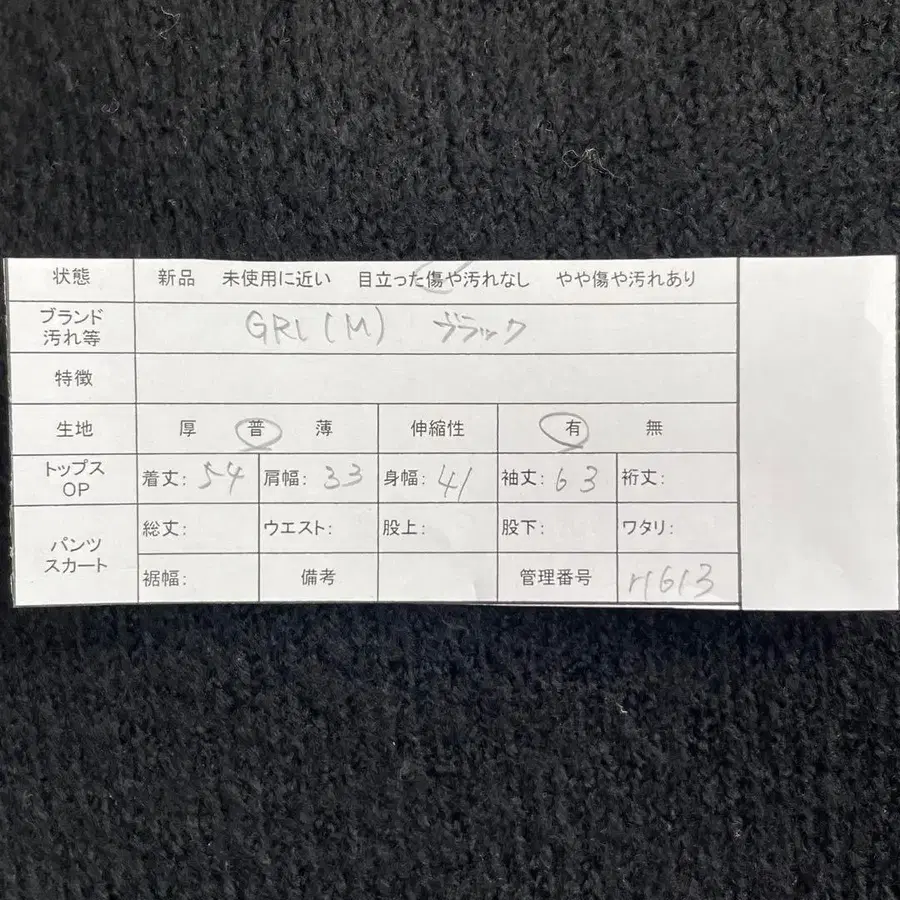 状態 新品 未使用に近い 目立った傷や汚れなし やや傷や汚れあり
ブランド
汚れ等 GRL(M) ブラック
特徴
生地 厚 普 薄 伸縮性 有 無
トップス
OP 着丈: 54 肩幅: 33 身幅: 41 袖丈: 63 裄丈:
パンツ
スカート 総丈: ウエスト: 股上: 股下: ワタリ:
裾幅: 備考 管理番号